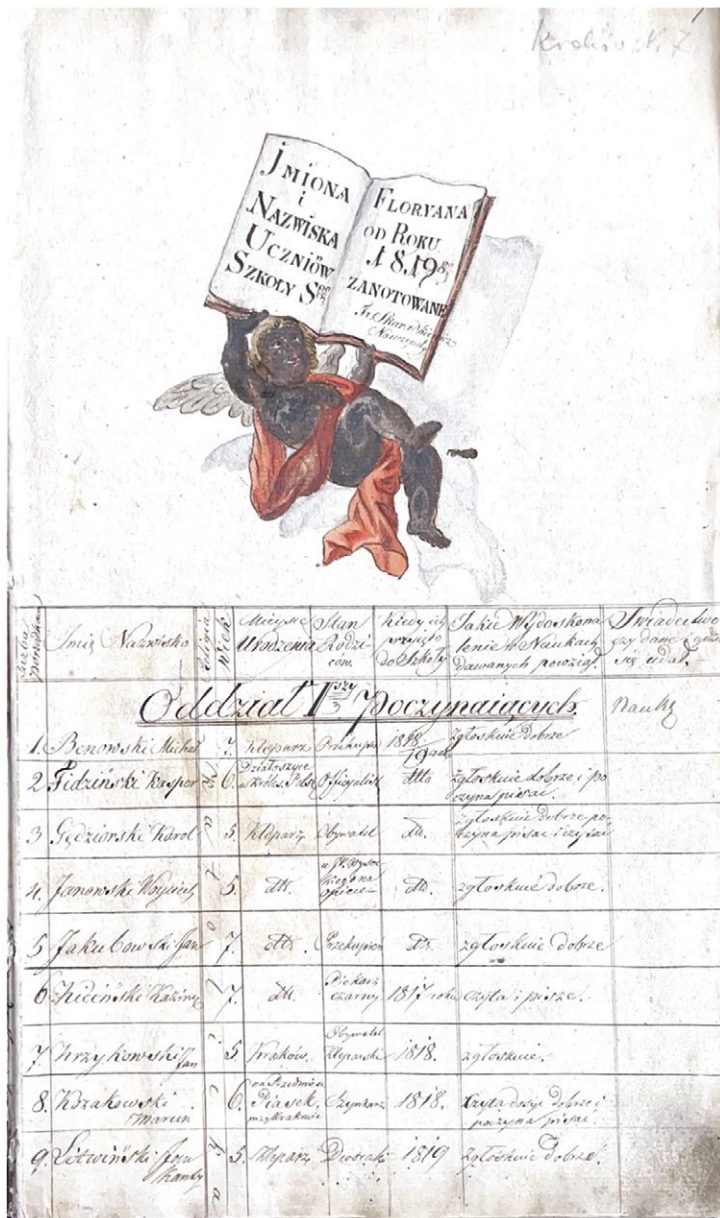 Kraków N. 7
JMIONA
i
NAZWISKA
UCZNIÓW
SZKOŁY Sgo
FLORYANA
OD ROKU
1819go
ZANOTOWANE
Liczba porządkowa
Imię Nazwisko
Religia
Wiek
Mieysce Urodzenia
Stan Rodziców.
Kiedy ich przyięto do Szkoły
Jakie Wydoskonalenie w Naukach dawanych powziął.
Swiadectwo
się udał.
Oddział Iszy Poczynaiących.
Nauką
1. Benowski Michał 7. Kleparz Przekupień 1818/19 zgłoskuie dobrze
2 Fidziński Kasper 6. Działoszyce w Króles. Pols. Officyalista dtto zgłoskuie dobrze i poczyna pisać.
3 Gędziorski Karol 5. Kleparz Obywatel dtt. zgłoskuie dobrze poczyna pisać i czytać
4. Janowski Woyciech 6. dtt. dtt. zgłoskuie dobrze.
5 Jakubowski Jan 7. dtt. Przekupień dtt. zgłoskuie dobrze
6 Kiciński Kazimirz 7. dtt. Piekarz czarny 1817 roku czyta i pisze.
7. Krzykowski Jan 5. Kraków. Obywatel Kleparski 1818. zgłoskuie.
8. Kozakowski Marcin 6. na Przedmieściu Piasek, przy Krakowie Szynkarz 1818. czyta dosyć dobrze i poczyna pisać.
9. Litwiński Jan Kanty 5. Kleparz Dworak 1819 zgłoskuie dobrze.